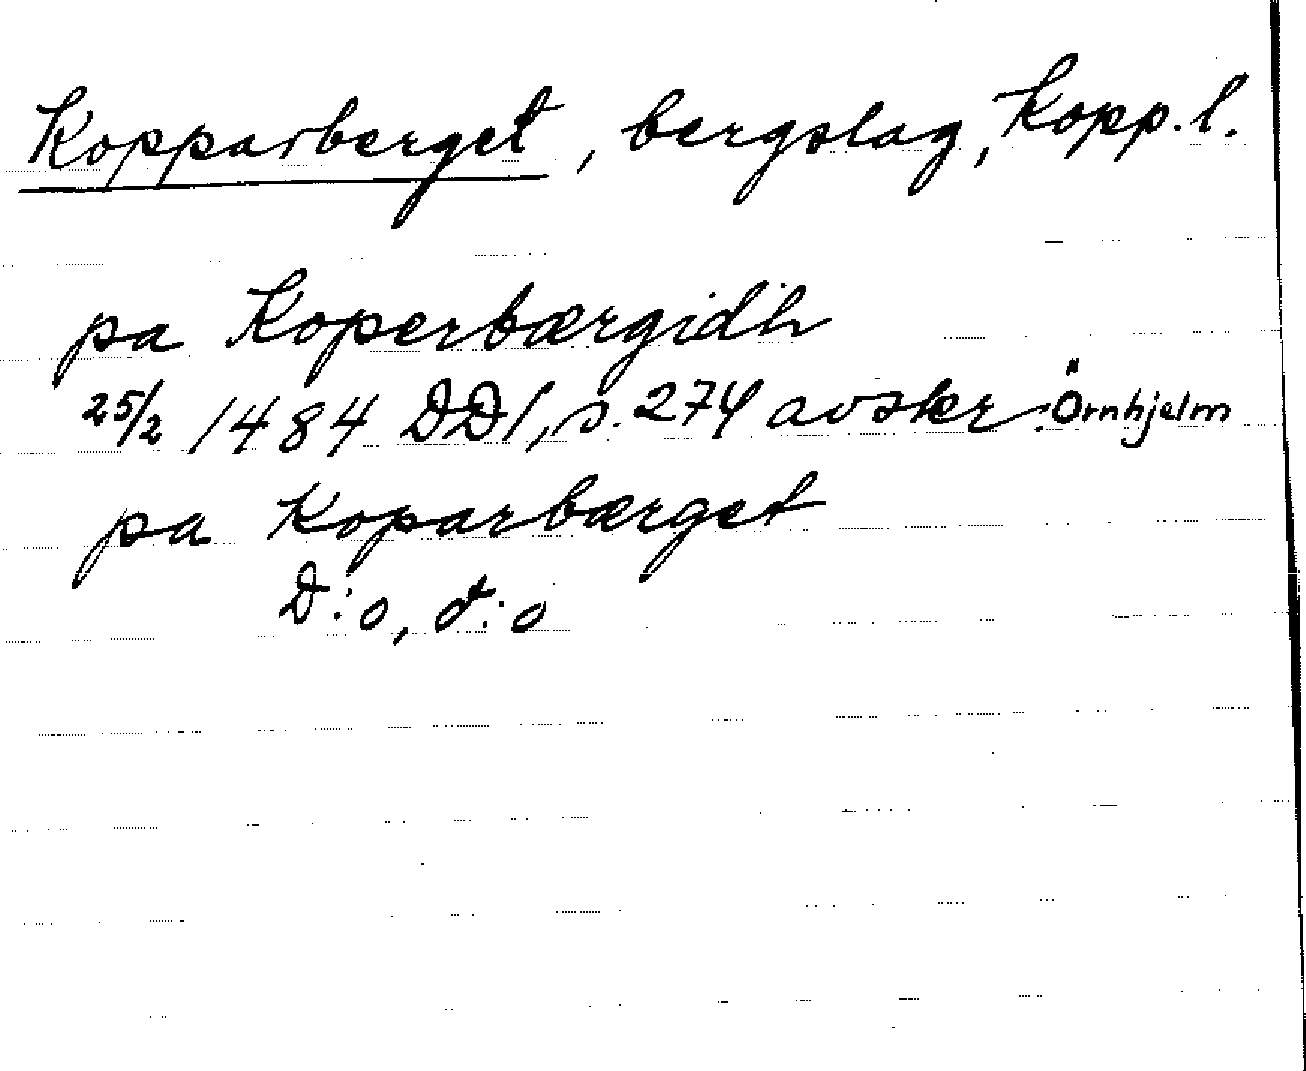 Kopparberget, bergslag, Kopp. l.
pa Koperbærgidh
25/2 1484 DD1, s. 274 avskr. Örnhjelm
pa Koparbærget
D:o, d:o